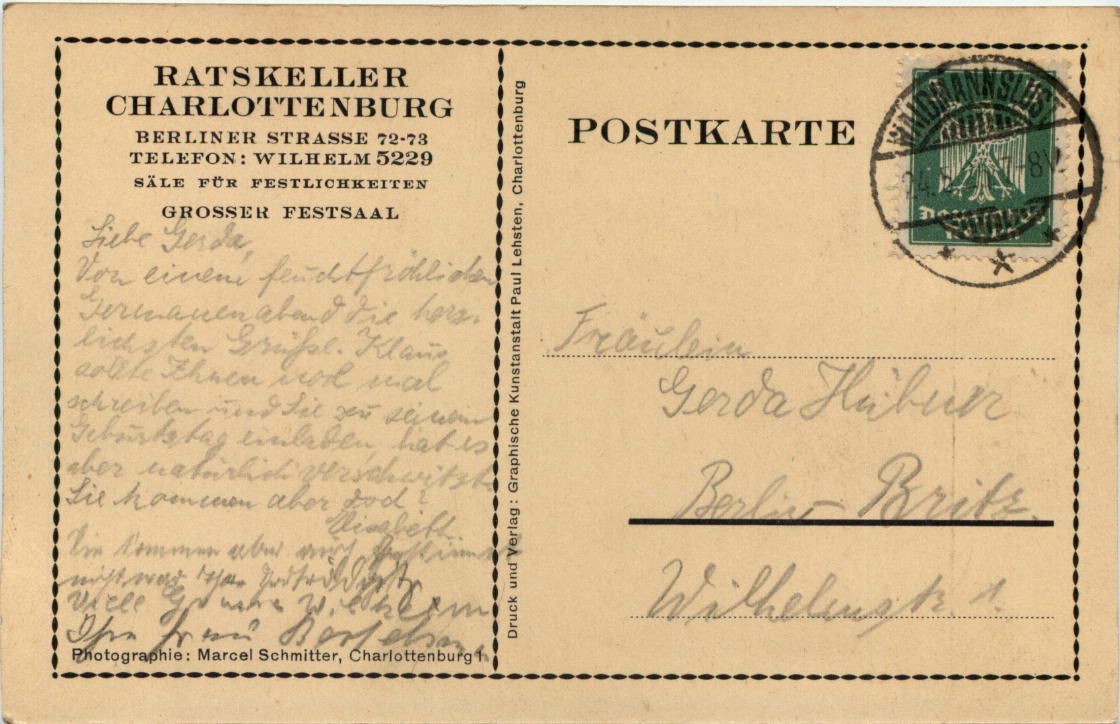 RATSKELLER
CHARLOTTENBURG
BERLINER STRASSE 72-73
TELEFON: WILHELM 5229
SÄLE FÜR FESTLICHKEITEN
GROSSER FESTSAAL
Liebe Gerda,
Von einem feuchtfröhlichen
Germanenabend die herz-
lichsten Grüße. Klaus
sollte Ihnen noch mal
schreiben und Sie zu seinem
Geburtstag einladen, hat es
aber natürlich verschwitzt.
Sie kommen aber doch?
Elisabeth
Sie kommen aber auch bestimmt
nicht wahr
Viele
Ihre Frau
Photographie: Marcel Schmitter, Charlottenburg 1
Druck und Verlag: Graphische Kunstanstalt Paul Lehsten, Charlottenburg
POSTKARTE
WAIDMANNSLUST
7-8 V.
Fräulein
Gerda Hübner
Berlin-Britz.
Wilhelmstr. 1.